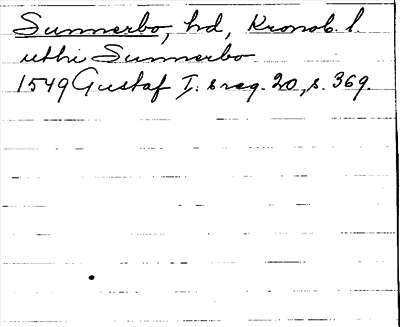 Sunnerbo, hd, Kronob. l.
uthi Sunnerbo
1549 Gustaf I:s reg. 20, s. 369.